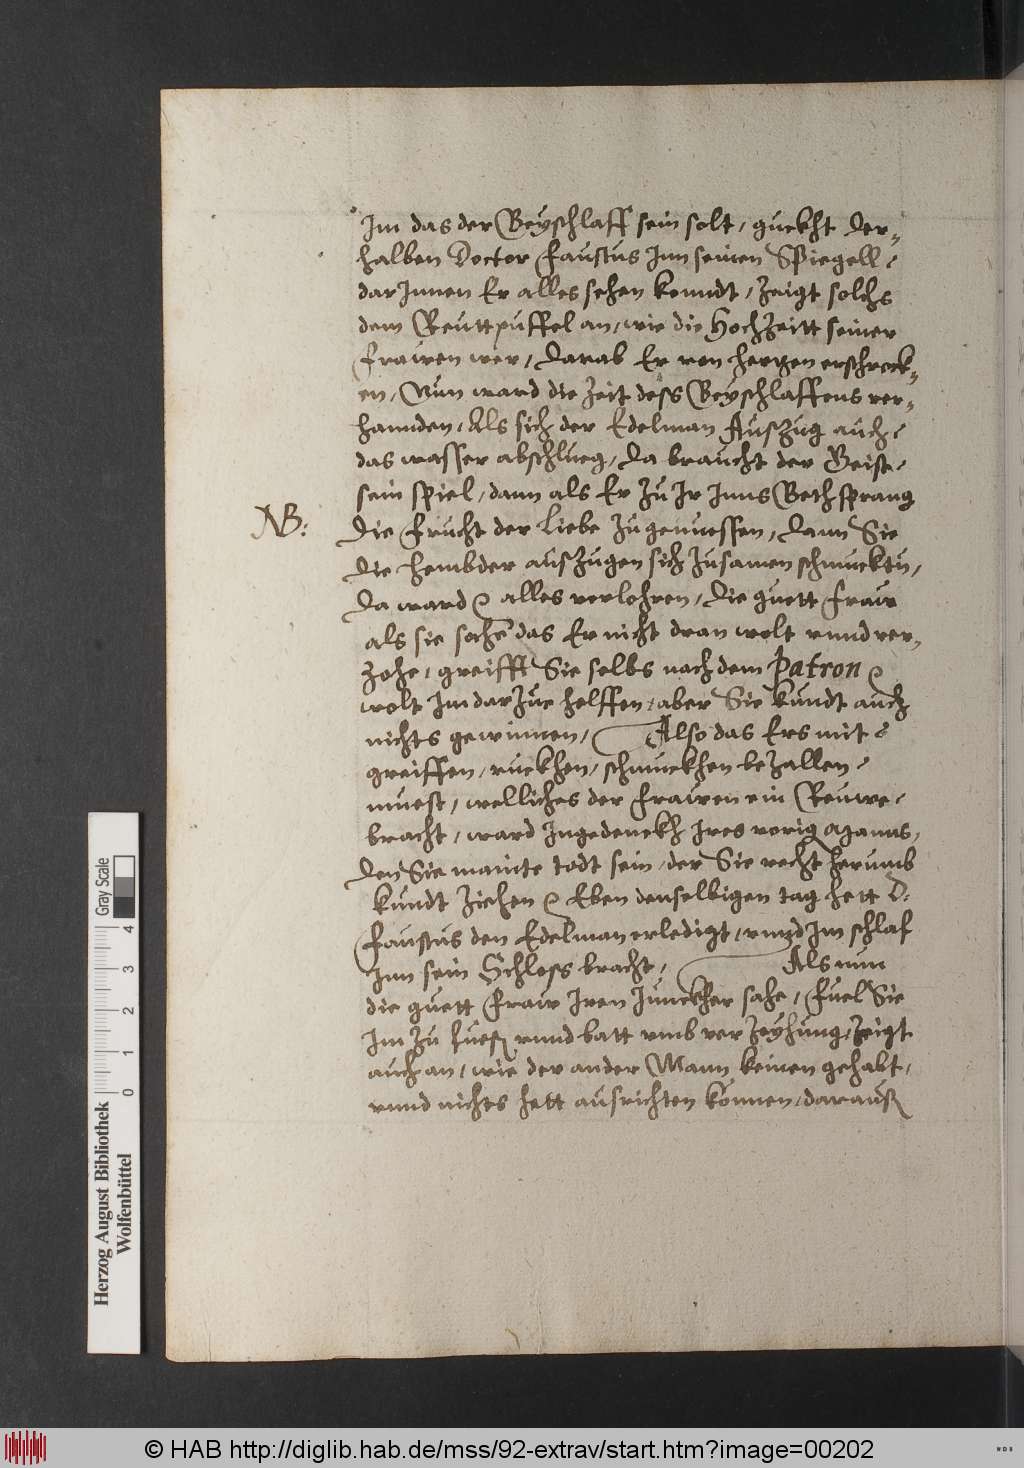 Im das der Beyschlaff sein solt, guckht der-
halben Doctor Faustus Inn seinen Spiegell
darInnen Er alles sehen kenndt, zeigt solchs
dem Reuttpuffel an, wie die Hochzeitt seiner
Frawen wer, darab Er von hertzen erschreck-
en, Nun ward die zeit dess Beyschlaffens ver-
hannden, Als sich der Edelman Auszug auch
das wasser abschlueg, da braucht der Geist
sein spiel, dann als Er zu Ir Inns Beth sprang
NB:
Die Frucht der Liebe zugenuessen, dann Sie
die hembder auszugen sich zusamen schmucktn,
da ward alles verlohren, die guett Fraw
als sie sahe das Er nicht dran wolt vnnd ver-
zohe, greifft Sie selbs nach dem Patron
wolt Im darzue helffen, aber Sie kundt auch
nichts gewinnen, Also das Ers mit
greiffen, ruckhen, schmuckhen bezallen
muest, welliches der Frawen ein Reuwe
bracht, ward Ingedenckh Ires vorig
den Sie mainte todt sein, der Sie recht herumb
kundt ziehen Eben denselbigen tag hett D:
Faustus den Edelman erledigt, vnnd Im schlaf
Inn sein Schloss bracht, Als nun
die guett Fraw Iren Junckher sahe, fuel Sie
Im zu fues vnnd batt vmb verzeyhung, zeigt
auch an, wie der ander Mann keinen gehabt,
vnnd nichts hett ausrichten können, daraus
Herzog August Bibliothek
Wolfenbüttel
0 1 2 3 4
Gray Scale
© HAB http://diglib.hab.de/mss/92-extrav/start.htm?image=00202
WDB